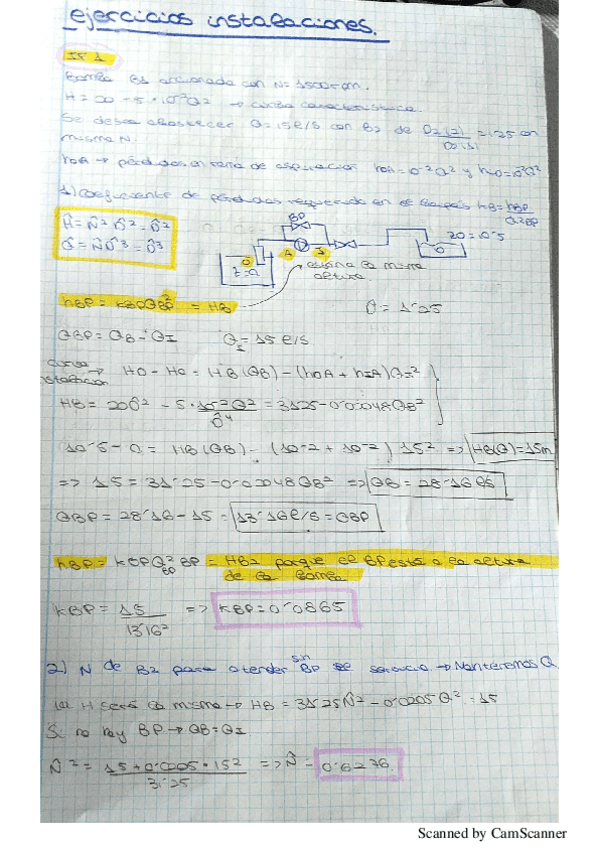 ejercicios instalaciones.
EJ 1
Bomba es accionada con N = 1500 rpm.
H = 20 - 5·10⁻²Q² → curva característica.
Se desea abastecer Q = 15 l/s con B2 de D2(2)/D2(1) = 1'25 con
misma N.
hOA → pérdidas en tramo de aspiración hOA = 10⁻²Q² y
1) coeficiente de pérdidas requerido en el bypass hB = hBP/Q²BP
Ĥ = N̂² D̂² = D̂²
Q̂ = N̂ D̂³ = D̂³
BP
O
z=0
A
I
O
zO = 10'5
misma
altura.
hBP = kBP QBP² = HB
D̂ = 1'25
QBP = QB - QI
QI = 15 l/s
curva
instalación → HO - HO = HB(QB) - (hOA + hIA)QI²
HB = 20D̂² - 5·10⁻²Q²/D̂⁴ = 31'25 - 0'02048QB²
10'5 - 0 = HB(QB) - (10⁻² + 10⁻²) 15² => HB(Q) = 15m
=> 15 = 31'25 - 0'02048QB² => QB = 28'16 l/s
QBP = 28'16 - 15 = 13'16 l/s = QBP
hBP = kBP Q²BP = HB2 porque el BP está a la altura
de la bomba
kBP = 15/13'16² => kBP = 0'0865
2) N de B2 para atender sin BP se servicio → Mantenemos Q
la H será la misma → HB = 31'25N̂² - 0'0205Q² = 15
Si no hay BP → QB = QI
N̂² = 15 + 0'0205·15²/31'25 => N̂ = 0'6276
Scanned by CamScanner